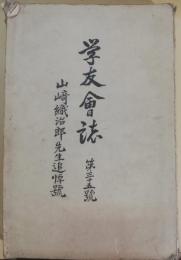 学友會誌
第三十五號
山﨑織治郎先生追悼號